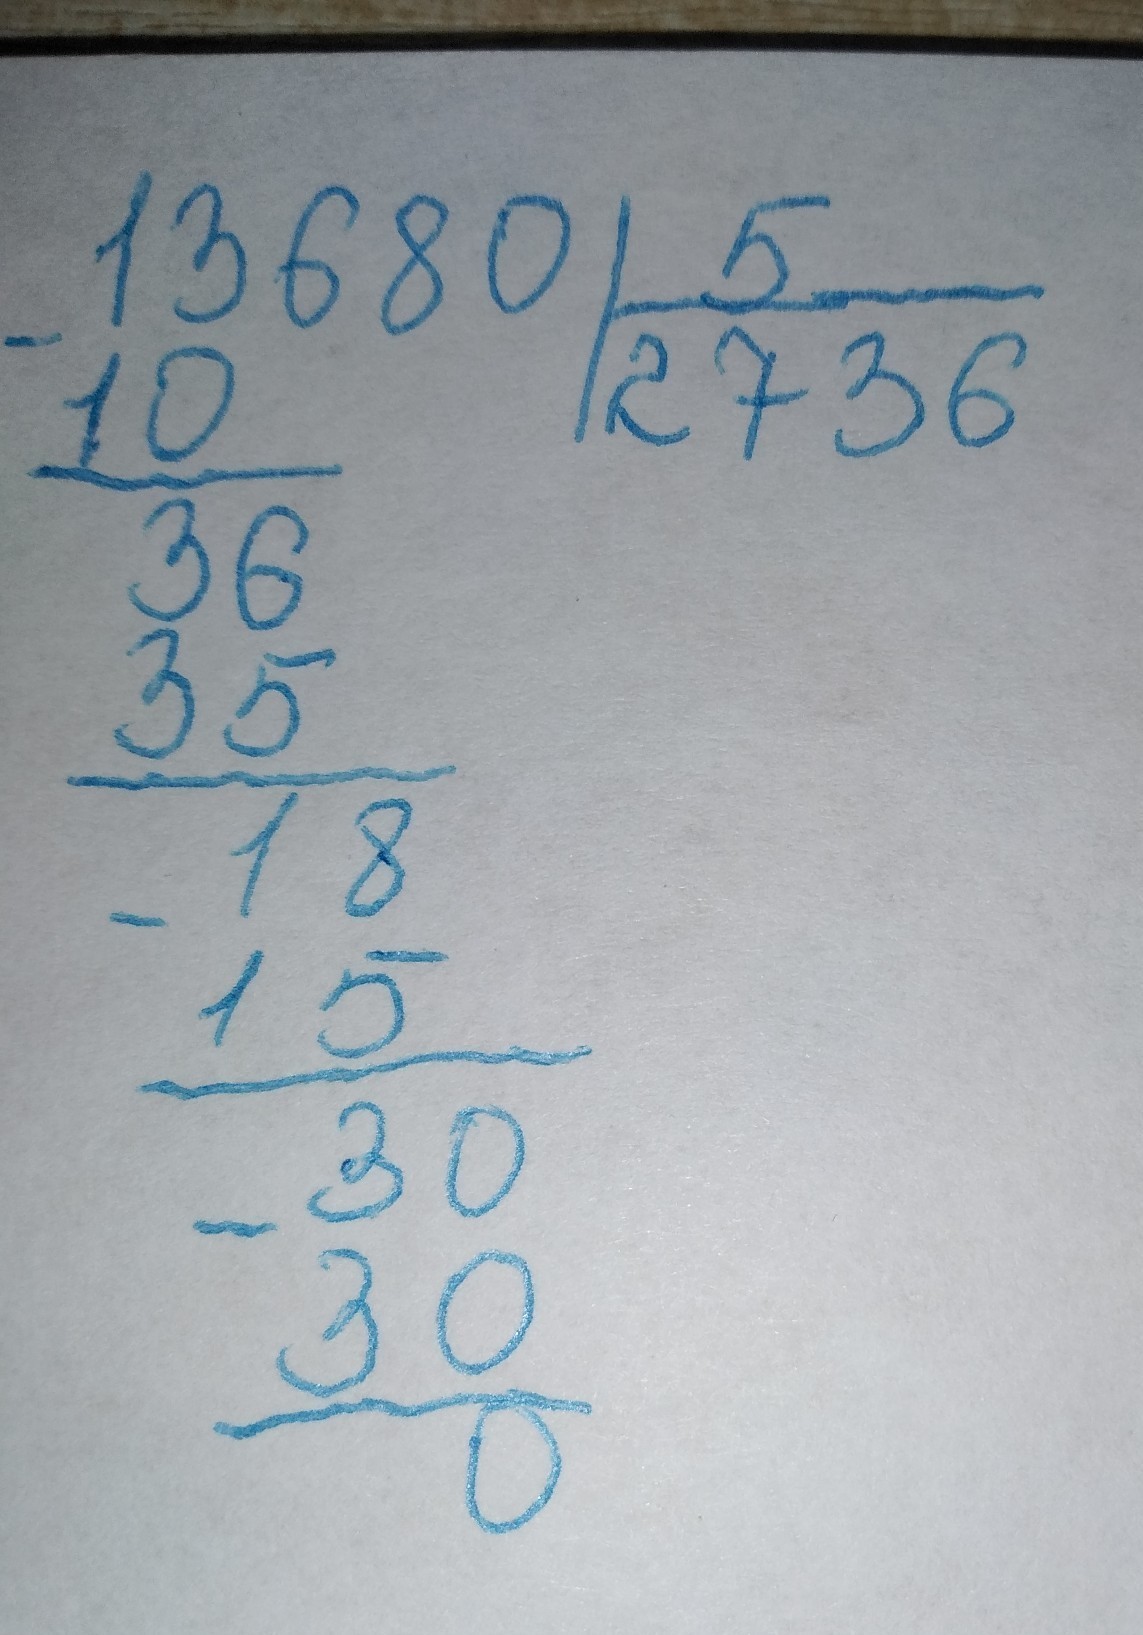 13680 5
- 2736
10
36
35
18
-
15
30
-
30
0